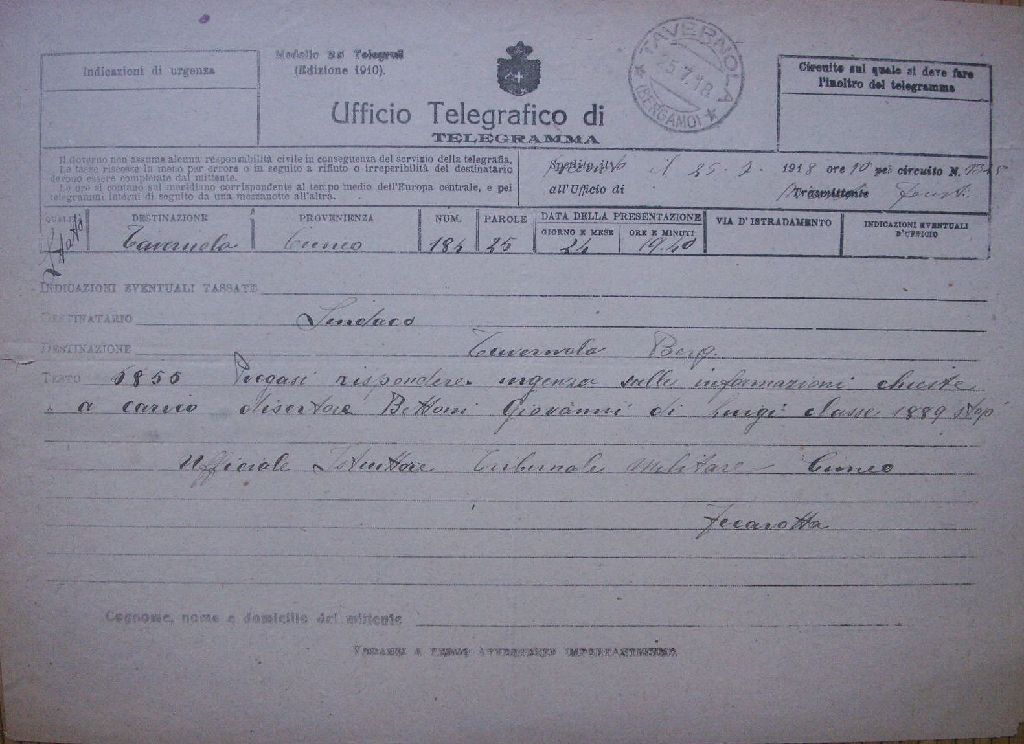 Indicazioni di urgenza
Modello 25 Telegrafi
(Edizione 1910).
TAVERNOLA
25.7.18
(BERGAMO)
Circuito sul quale si deve fare
l'inoltro del telegramma
Ufficio Telegrafico di
TELEGRAMMA
Il Governo non assume alcuna responsabilità civile in conseguenza del servizio della telegrafia.
Le tasse riscosse in meno per errore o in seguito a rifiuto o irreperibilità del destinatario
devono essere completate dal mittente.
Le ore si contano sul meridiano corrispondente al tempo medio dell'Europa centrale, e pei
telegrammi interni di seguito da una mezzanotte all'altra.
il 25-7- 1918 ore 10 pel circuito N.
all'Ufficio di Trasmittente
QUALIFICA DESTINAZIONE PROVENIENZA NUM. PAROLE DATA DELLA PRESENTAZIONE VIA D'ISTRADAMENTO INDICAZIONI EVENTUALI D'UFFICIO
GIORNO E MESE ORE E MINUTI
Stato Tavernola Cuneo 184 25 24 19.40
INDICAZIONI EVENTUALI TASSATE
DESTINATARIO Sindaco
DESTINAZIONE Tavernola Berg.
TESTO 5855 Pregasi rispondere urgenza sulle informazioni chieste
a carico disertore Bettoni Giovanni di Luigi classe 1889 stop
Ufficiale Istruttore Tribunale Militare Cuneo
Fecarotta
Cognome, nome e domicilio del mittente
VEGGANSI A TERGO AVVERTENZE IMPORTANTISSIME